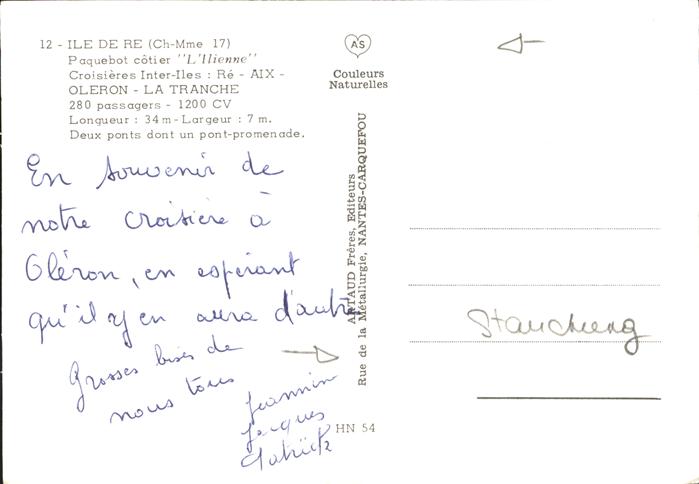 12 - ILE DE RE (Ch-Mme 17)
Paquebot côtier "L'Ilienne"
Croisières Inter-Iles : Ré - AIX -
OLERON - LA TRANCHE
280 passagers - 1200 CV
Longueur : 34 m - Largeur : 7 m.
Deux ponts dont un pont-promenade.
AS
Couleurs
Naturelles
ARTAUD Frères, Editeurs
Rue de la Métallurgie, NANTES-CARQUEFOU
En souvenir de
notre croisière à
Oléron, en espérant
qu'il y en aura d'autre
Grosses bises de
nous tous
Jeannin
Jacques
Patrick
HN 54